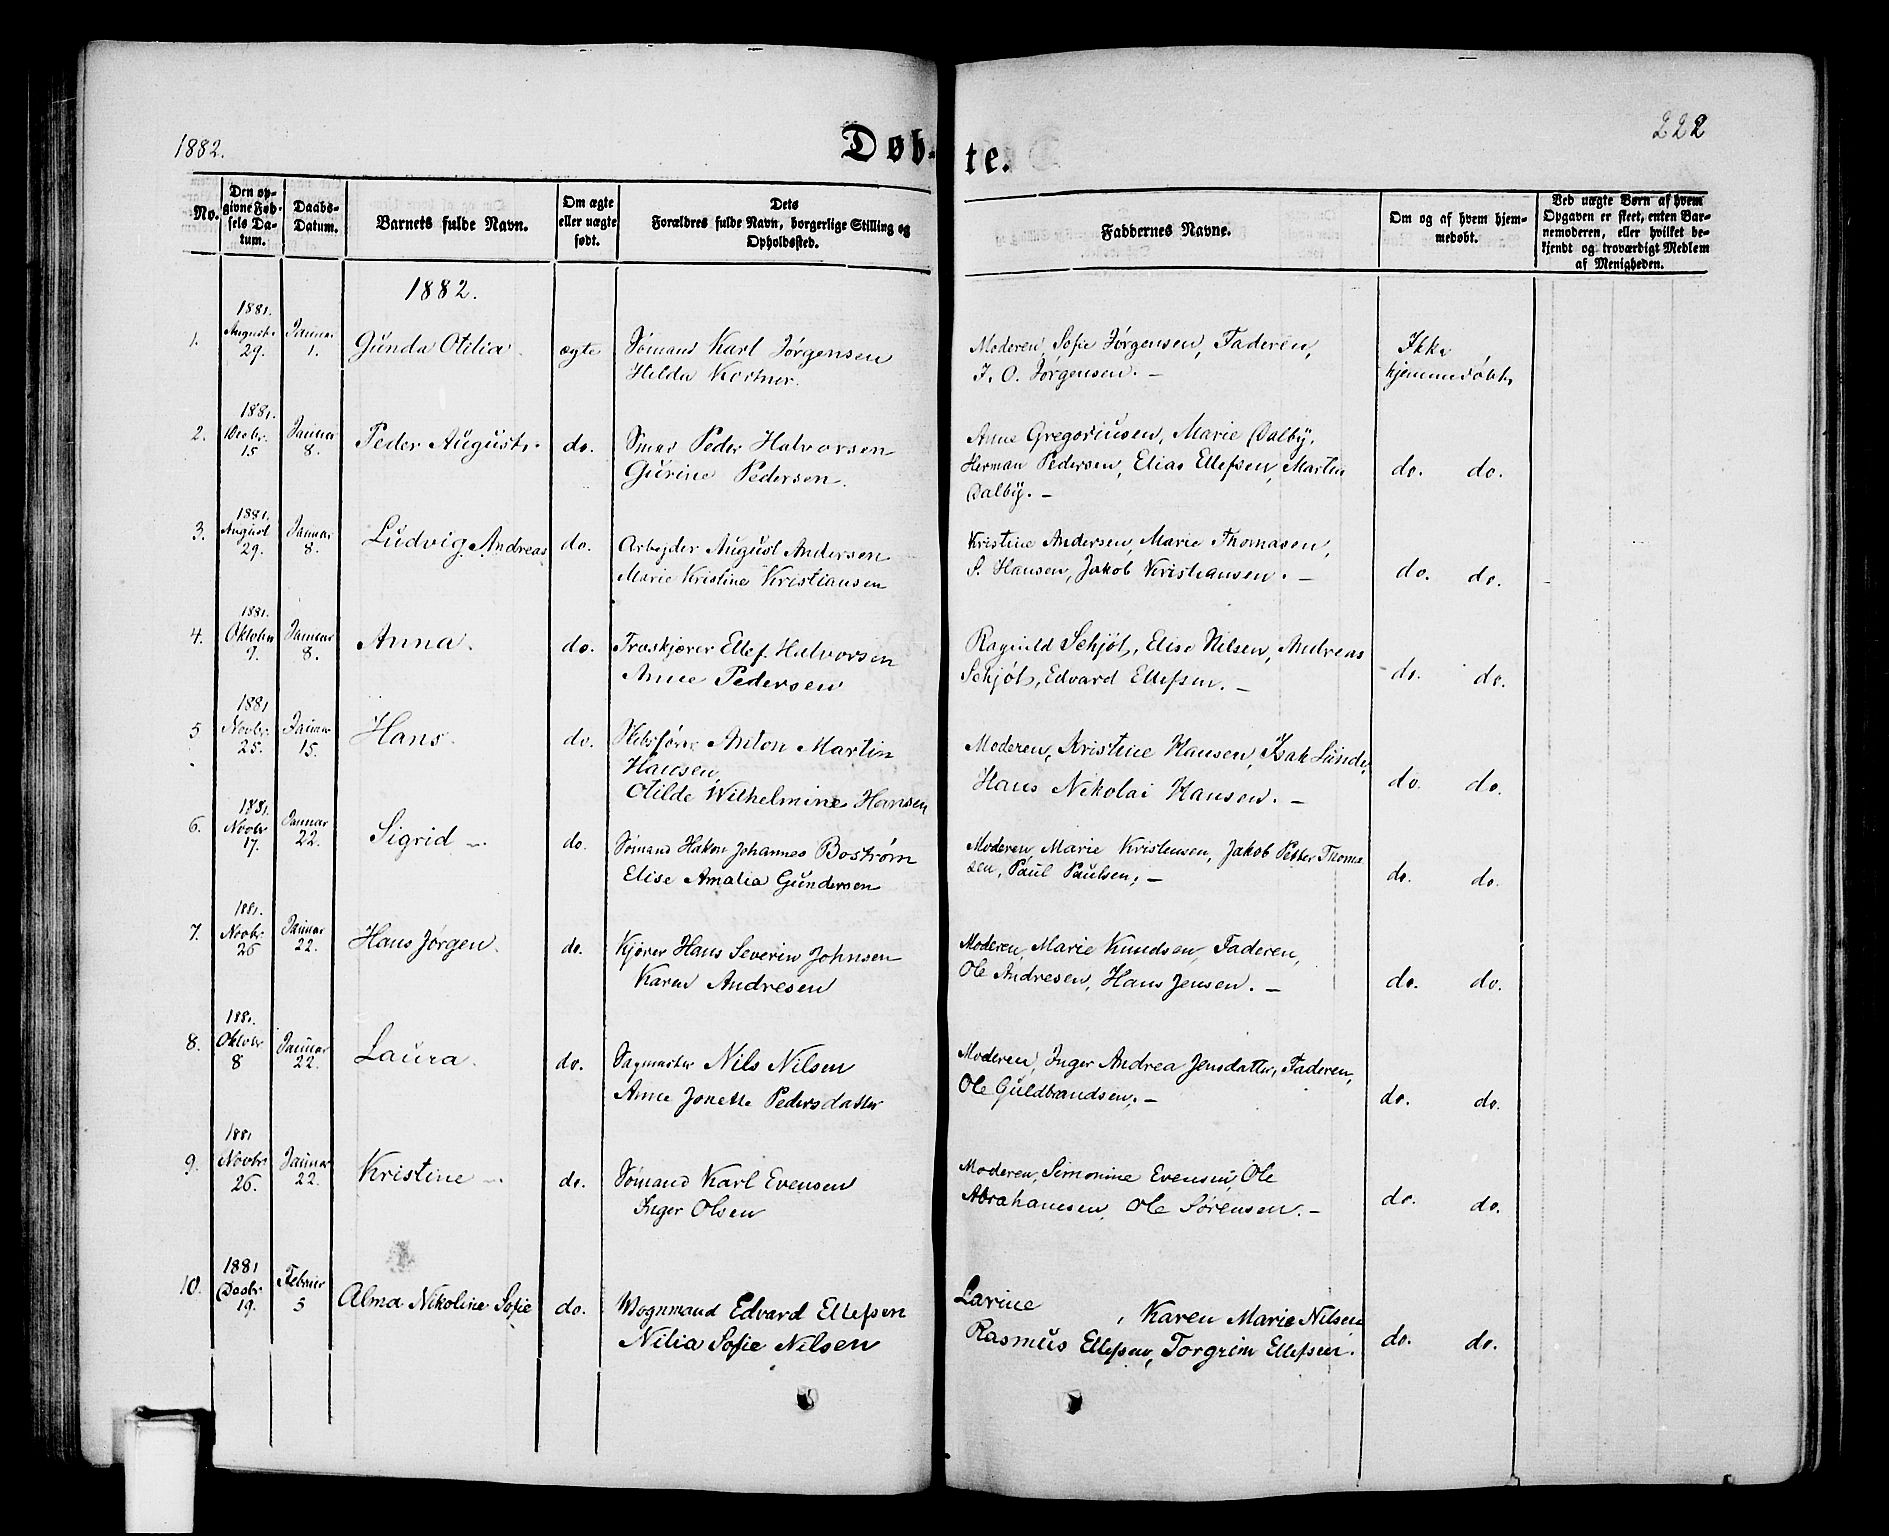 1882.
Døb-
te.
222
No.
Den op-
givne Fød-
sels Da-
tum.
Daabs-
Datum.
Barnets fulde Navn.
Om ægte
eller uægte
født.
Dets
Forældres fulde Navn, borgerlige Stilling og
Opholdssted.
Faddernes Navne.
Om og af hvem hjem-
medøbt.
Ved uægte Børn af hvem
Opgaven er skeet, enten Bar-
nemoderen, eller hvilket be-
kjendt og troværdigt Medlem
af Menigheden.
1882.
1.
1881.
August
29.
Januar
1.
Gunda Otilia.
ægte
Sømand Karl Jørgensen
Hilda Kortner.
Moderen, Sofie Jørgensen, Faderen,
J. O. Jørgensen. –
Ikke
hjemmedøbt.
2.
1881.
15
Januar
8.
Peder August.
do.
Smed Peder Halvorsen
Gurine Pedersen.
Anne Gregoriusen, Marie Dalby,
Herman Pedersen, Elias Ellefsen, Martin
Dalby. –
do. do.
3.
1881.
August
29.
Januar
8.
Ludvig Andreas
do.
Arbejder August Andersen
Marie Kristine Kristiansen
Kristine Andersen, Marie Thomasen,
S. Hansen, Jakob Kristiansen. –
do. do.
4.
1881.
Oktober
9.
Januar
8.
Anna.
do.
Ellef Halvorsen
Anne Pedersen
Ragnild Schjøt, Elise Nilsen, Andreas
Schjøt, Edvard Ellefsen. –
do. do.
5
1881
Novbr.
25.
Januar
15.
Hans.
do.
Anton Martin
Hansen,
Otilde Wilhelmine Hansen
Moderen, Kristine Hansen, Isak Lunde,
Hans Nikolai Hansen. –
do. do.
6.
1881.
Novbr
17.
Januar
22.
Sigrid –.
do.
Sømand Hakon Johannes Bostrøm
Elise Amalia Gundersen
Moderen, Marie Kristensen, Jakob Petter Thoma
sen, Paul Paulsen. –
do. do.
7.
1881.
Novbr.
26
Januar
22.
Hans Jørgen.
do.
Kjører Hans Severin Johnsen
Karen Andresen
Moderen, Marie Knudsen, Faderen,
Ole Andresen, Hans Jensen. –
do. do.
8.
1881.
Oktober
8
Januar
22.
Laura.
do.
Sagmester Nils Nilsen
Anne Jonette Pedersdatter
Moderen, Inger Andrea Jensdatter, Faderen,
Ole Guldbrandsen. –
do. do.
9.
1881
Novbr
26.
Januar
22.
Kristine –.
do.
Sømand Karl Evensen
Inger Olsen
Moderen, Simonine Evensen, Ole
Abrahamsen, Ole Sørensen. –
do. do.
10.
1881
Decbr
19.
Februar
5
Alma Nikoline Sofie
do.
Vognmand Edvard Ellefsen
Nilia Sofie Nilsen
Larine , Karen Marie Nilsen
Rasmus Ellefsen, Torgrim Ellefsen.
do. do.